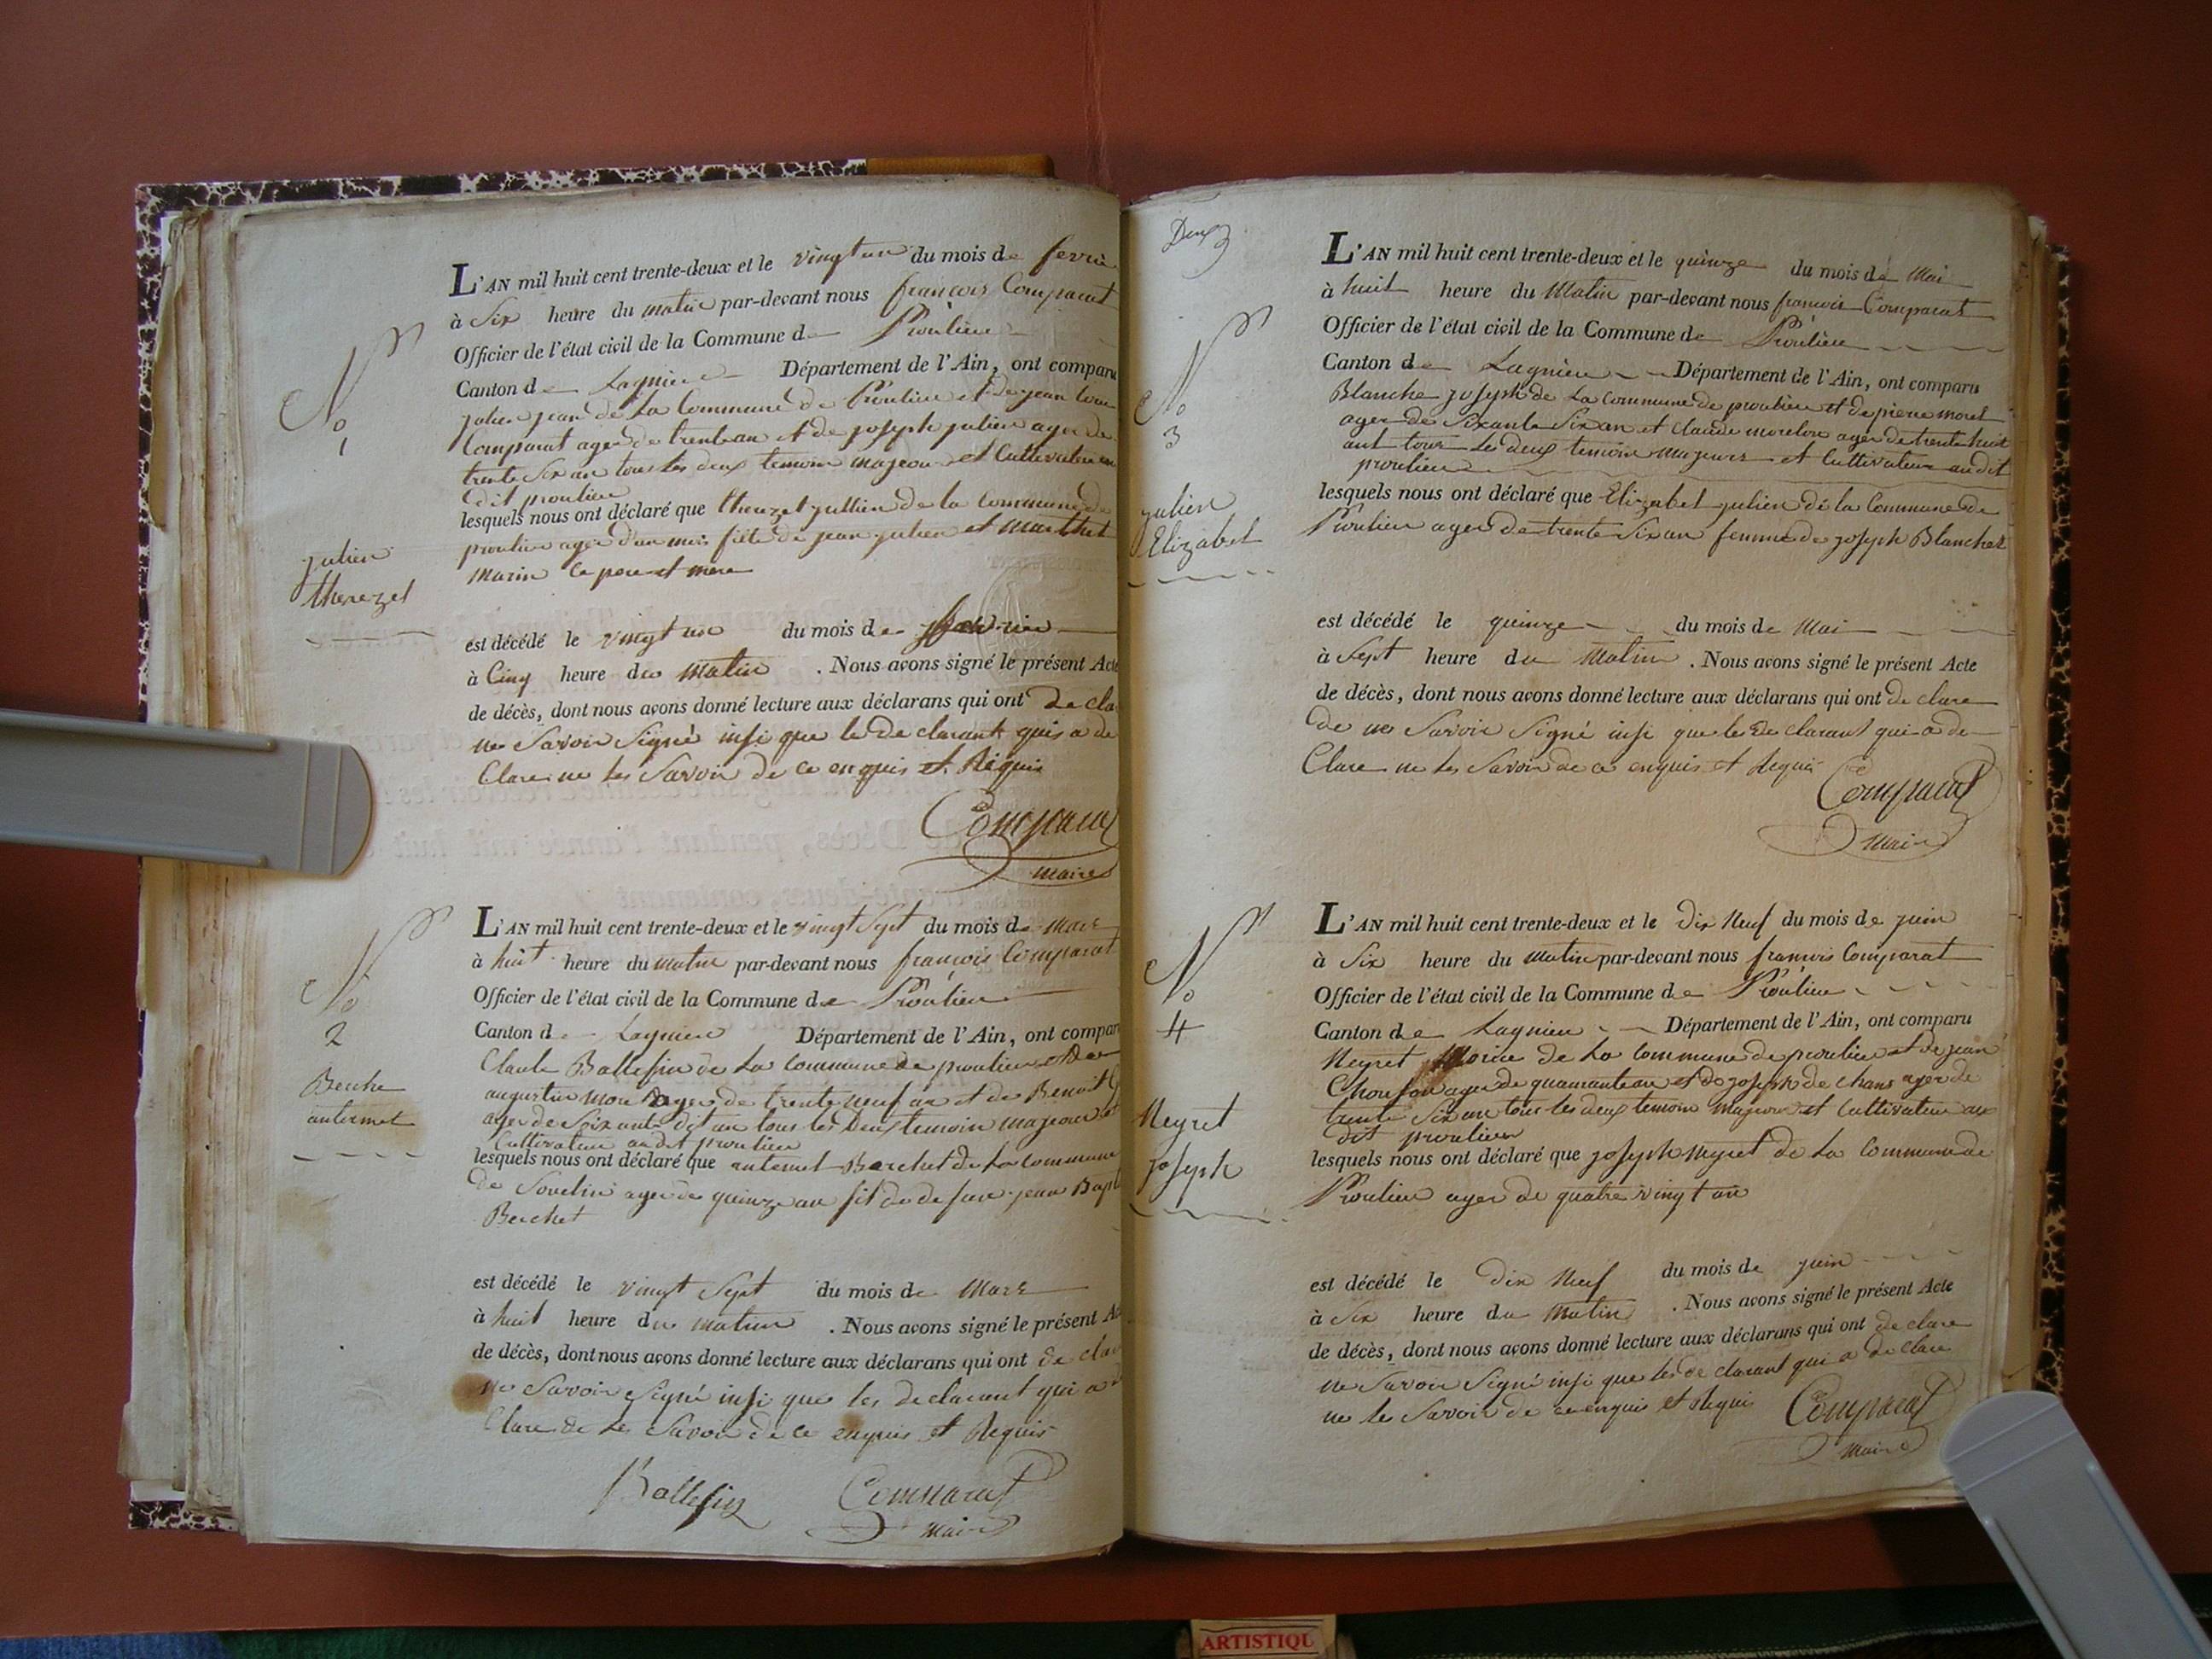 L'AN mil huit cent trente-deux et le vingt un du mois de fevrie
à Six heure du matin par-devant nous francois Comparat
Officier de l'état civil de la Commune de Proulieu
Canton de Lagnieu Département de l'Ain, ont comparu
julien jean de La Commune de Proulieu et de jean
Comparat ager de trente an et de joseph julien ager de
trente Six an tous les deux temoin majeour et Cultivateur au
dit proulieu
lesquels nous ont déclaré que therezet jullien de la Commune de
proulieu ager d'un mois fille de jean julien et
Marin Ce pere et mere
est décédé le vingt un du mois de
à Cinq heure du matin . Nous avons signé le présent Acte
de décès, dont nous avons donné lecture aux déclarans qui ont de cla
ne Savoir Signé insi que le de clarant quis a de
Clare ne les Savoir de ce enquis et Requis
Comparat
maire
No
1
julien
therezet
L'AN mil huit cent trente-deux et le vingt Sept du mois de Mars
à huit heure du matin par-devant nous francois Comparat
Officier de l'état civil de la Commune de Proulieu
Canton de Lagnieu Département de l'Ain, ont compar
Claude Ballefin de La Commune de proulieu et de
augustin ager de trente neuf an et de Benoit
ager de Soixante dit an tous les Deux temoin majeour et
Cultivateur au dit proulieu
lesquels nous ont déclaré que antermet Berchet de La Commune
de Souclin ager de quinze an fils de defun jean Bapt
Berchet
est décédé le vingt Sept du mois de Mars
à huit heure du matin . Nous avons signé le présent Ac
de décès, dont nous avons donné lecture aux déclarans qui ont de clar
ne Savoir Signé insi que les de clarant qui a d
Clare de les Savoir de ce enquis et Requis
Ballefin Comparat
maire
No
2
Berche
antermet
Deux
L'AN mil huit cent trente-deux et le quinze du mois de Mai
à huit heure du Matin par-devant nous francois Comparat
Officier de l'état civil de la Commune de Proulieu
Canton de Lagnieu Département de l'Ain, ont comparu
Blanche joseph de La Commune de proulieu et de pierre morel
ager de Soixante Six an et Claude morelon ager de trente huit
ant tous Les deux temoin Majeurs et Cultivateur au dit
proulieu
lesquels nous ont déclaré que Elizabet julien de la Commune de
Proulieu ager de trente Six an femme de joseph Blanchet
est décédé le quinze du mois de Mai
à Sept heure du Matin . Nous avons signé le présent Acte
de décès, dont nous avons donné lecture aux déclarans qui ont de clare
de ne Savoir Signé insi que les de clarant qui a de
Clare ne les Savoir de ce enquis et Requis
Comparat
maire
No
3
julien
Elizabet
L'AN mil huit cent trente-deux et le Dix Neuf du mois de juin
à Six heure du Matin par-devant nous francois Comparat
Officier de l'état civil de la Commune de Proulieu
Canton de Lagnieu Département de l'Ain, ont comparu
Neyret de La Commune de proulieu et de jean
ager de quaranteans et de joseph de chans ager de
trente Six an tous les deux temoin majeour et Cultivateur au
dit proulieu
lesquels nous ont déclaré que joseph neyret de La Commune de
Proulieu ager de quatre vingt an
est décédé le Dix Neuf du mois de juin
à Six heure du Matin . Nous avons signé le présent Acte
de décès, dont nous avons donné lecture aux déclarans qui ont de clare
ne Savoir Signé insi que les de clarant qui a de Clare
ne le Savoir de ce enquis et Requis Comparat
maire
No
4
Neyret
joseph
ARTISTIQU